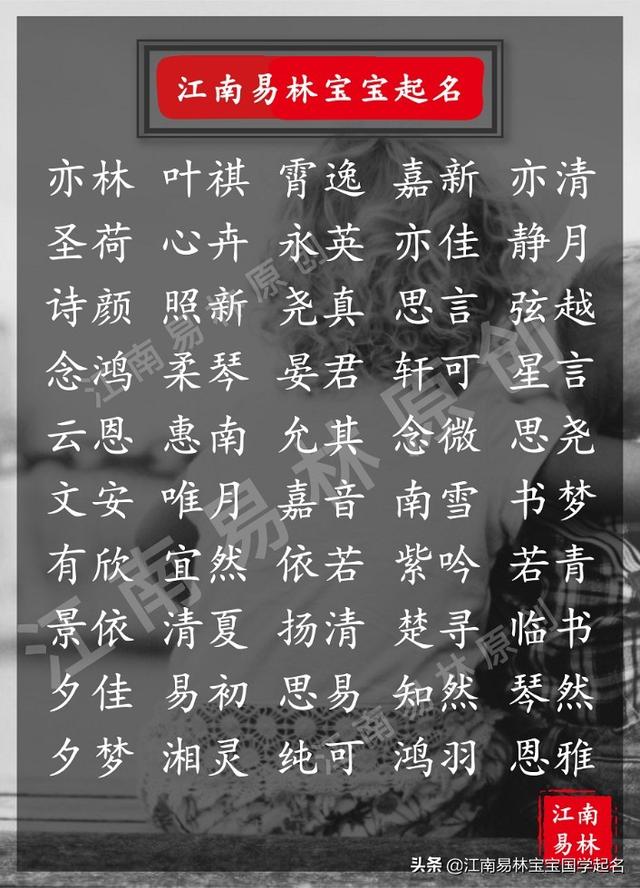 江南易林宝宝起名
亦林 叶祺 霄逸 嘉新 亦清
圣荷 心卉 永英 亦佳 静月
诗颜 照新 尧真 思言 弦越
念鸿 柔琴 晏君 轩可 星言
云恩 惠南 允其 念微 思尧
文安 唯月 嘉音 南雪 书梦
有欣 宜然 依若 紫吟 若青
景依 清夏 扬清 楚寻 临书
夕佳 易初 思易 知然 琴然
夕梦 湘灵 纯可 鸿羽 恩雅
江南易林原创
江南易林原创
江南易林原创
江南
易林
头条 @江南易林宝宝国学起名